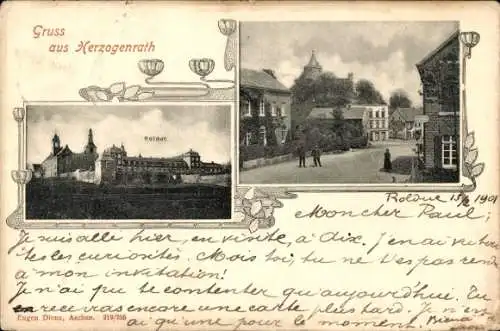 Gruss
aus Herzogenrath
Rolduc
Rolduc 15/6 1901
Mon cher Paul,
Je suis allé hier, en visite, à Aix. J'en ai vu
tes les curiosités. Mois toi, tu ne t'es pas rendu
à mon invitation!
Je n'ai pu te contenter qu'aujourd'hui. Tu
en recevrai encore une carte plus tard. Je n'en
ai qu'une pour le moment.
Eugen Dienz, Aachen.